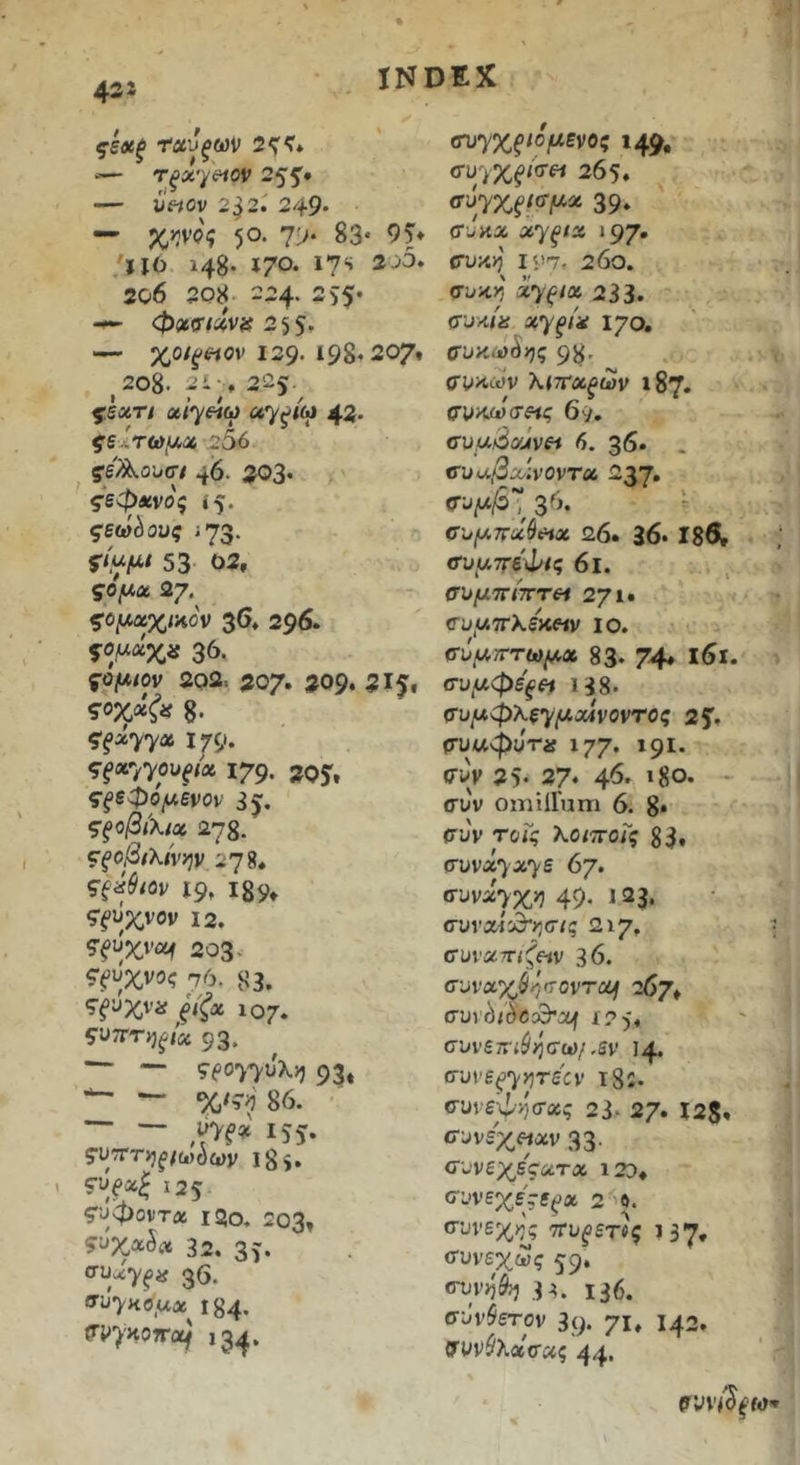 422
INDEX
ϛέαρ ταύρων 255.
— τράγειον 255.
— ὕειον 232. 249.
— χηνὸς 50. 79. 83. 95.
116 148. 170. 175 205.
206 208 224. 255.
— Φασιάνȣ 255.
— χοίρειον 129. 198. 207.
208. 225.
ϛέατι αἰγείῳ ἀγρίῳ 42.
ϛεάτωμα 256
ϛέλλουσι 46. 203.
ϛεφανὸς 15.
ϛεώδους 173.
ϛίμμι 53 62.
ϛόμα 27.
ϛομαχικὸν 36. 296.
ϛομάχȣ 36.
ϛόμιον 202. 207. 209. 215.
ϛοχάζȣ 8.
ϛράγγα 179.
ϛραγγουρία 179. 205.
ϛρεφόμενον 35.
ϛροβίλια 278.
ϛροβιλίνην 278.
ϛρȣ́θιον 19. 189.
ϛρύχνον 12.
ϛρύχναι 203.
ϛρύχνος 76. 83.
ϛρύχνȣ ῥίζα 107.
ϛυπτηρία 93.
— — ϛρογγύλη 93.
— — χιϛὴ 86.
— — ὑγρὰ 155.
ϛυπτηριωδῶν 185.
ϛύραξ 125
ϛύφοντα 120. 203.
ϛύχαδα 32. 35.
συάγρȣ 36.
σύγκομα 184.
συγκοπαὶ 134.
συγχριόμενος 149.
συγχρίσει 265.
σύγχρισμα 39.
σῦκα ἄγρια 197.
συκῆ 197. 260.
συκῆ ἄγρια 233.
συκίȣ ἀγρίȣ 170.
συκώδης 98.
συκῶν λιπαρῶν 187.
συκώσεις 69.
συμβαίνει 6. 36.
συμβαίνοντα 237.
συμβῇ 36.
συμπάθεια 26. 36. 186.
συμπέψις 61.
συμπίπτει 271.
συμπλέκειν 10.
σύμπτωμα 83. 74. 161.
συμφέρει 138.
συμφλεγμαίνοντος 25.
συμφύτȣ 177. 191.
σὺν 25. 27. 46. 180.
σὺν omissum 6. 8.
σὺν τοῖς λοιποῖς 83.
συνάγαγε 67.
συνάγχη 49. 123.
συναίσθησις 217.
συναπίζειν 36.
συναχθήσονται 267.
συνδίδοσθαι 175.
συνεπιθήσωμεν 14.
συνεργητέον 182.
συνεψήσας 23. 27. 128.
συνέχειαν 33.
συνεχέϛατα 120.
συνεχέϛερα
συνεχὴς πυρετὸς 137.
συνεχῶς 59.
συνήθη 33. 136.
σύνθετον 39. 71. 142.
συνθλάσας 44.
συνίδρω-